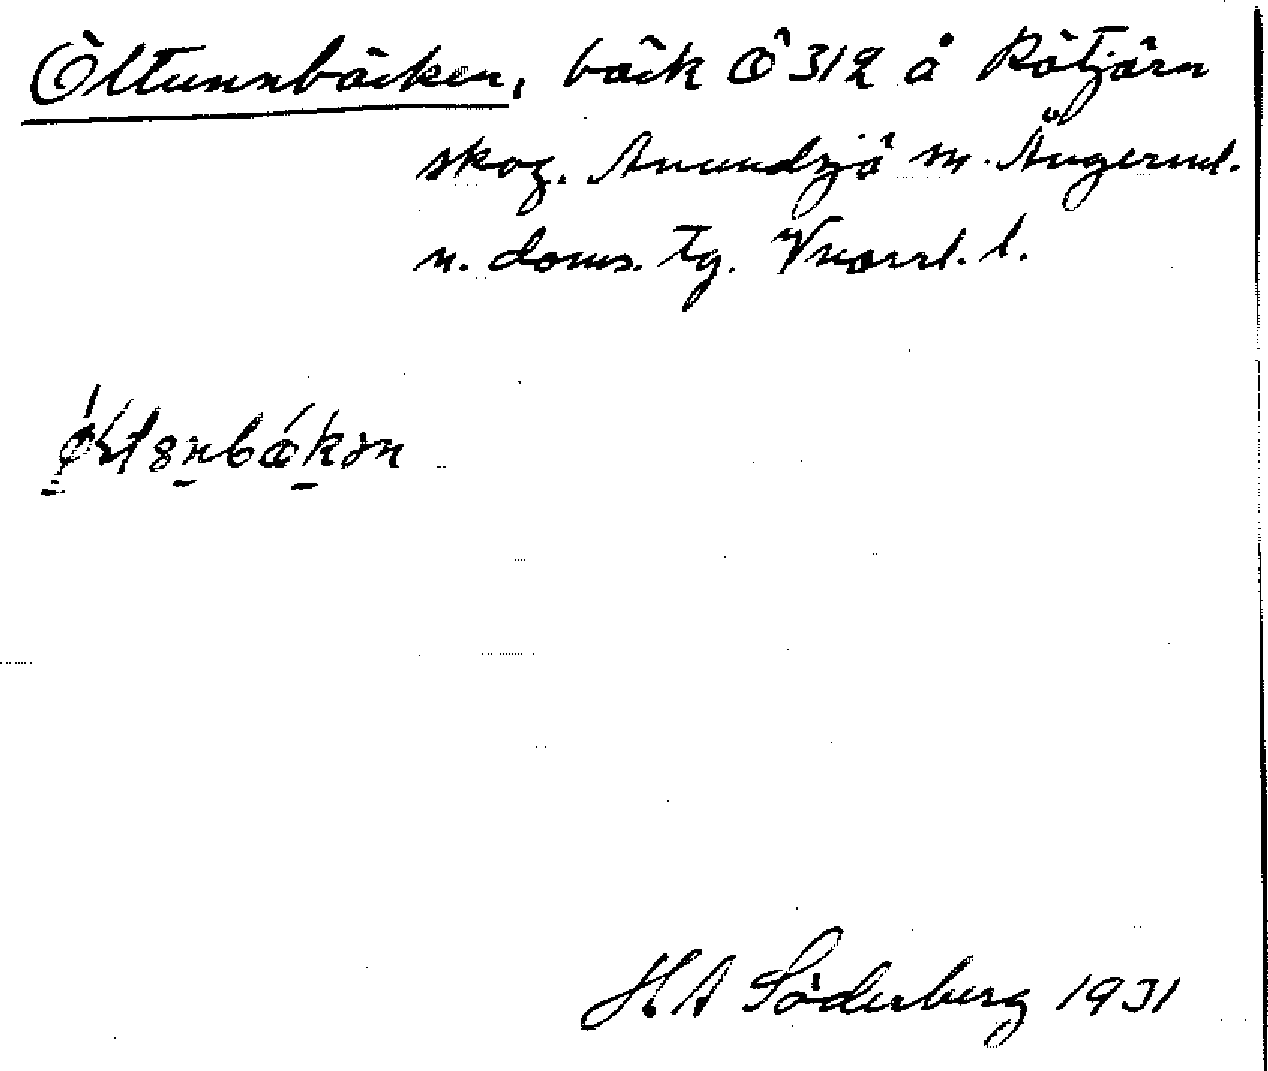 Öltunnbäcken, bäck Ö 312 å Rötjärn
skog. Anundsjö sn. Ångerml.
n. doms. tg. Vnorrl. l.
H A Söderberg 1931